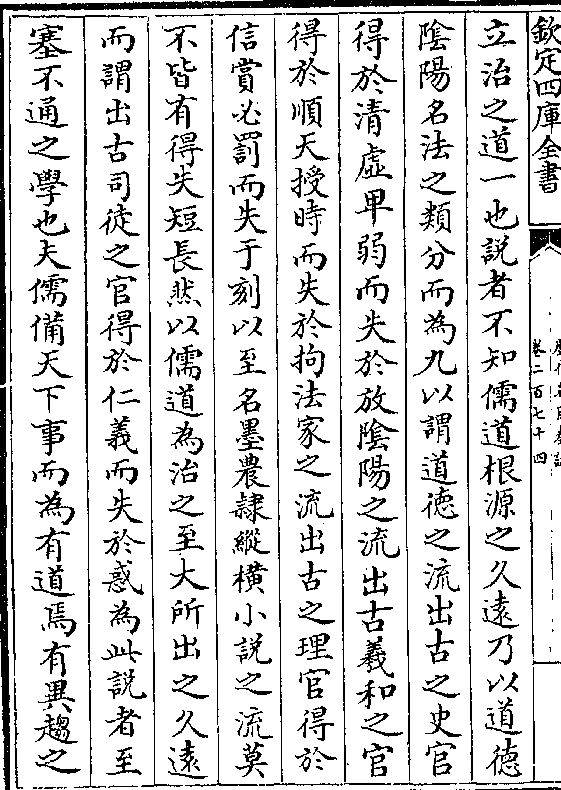 欽定四庫全書
卷二百七十四
立治之道一也說者不知儒道根源之久遠乃以道德
陰陽名法之類分而為九以謂道德之流出古之史官
得於清虛卑弱而失於放陰陽之流出古羲和之官
得於順天授時而失於拘法家之流出古之理官得於
信賞必罰而失于刻以至名墨農隷縱橫小說之流莫
不皆有得失短長然以儒道為治之至大所出之久遠
而謂出古司徒之官得於仁義而失於惑為此說者至
塞不通之學也夫儒備天下事而為有道焉有異趨之